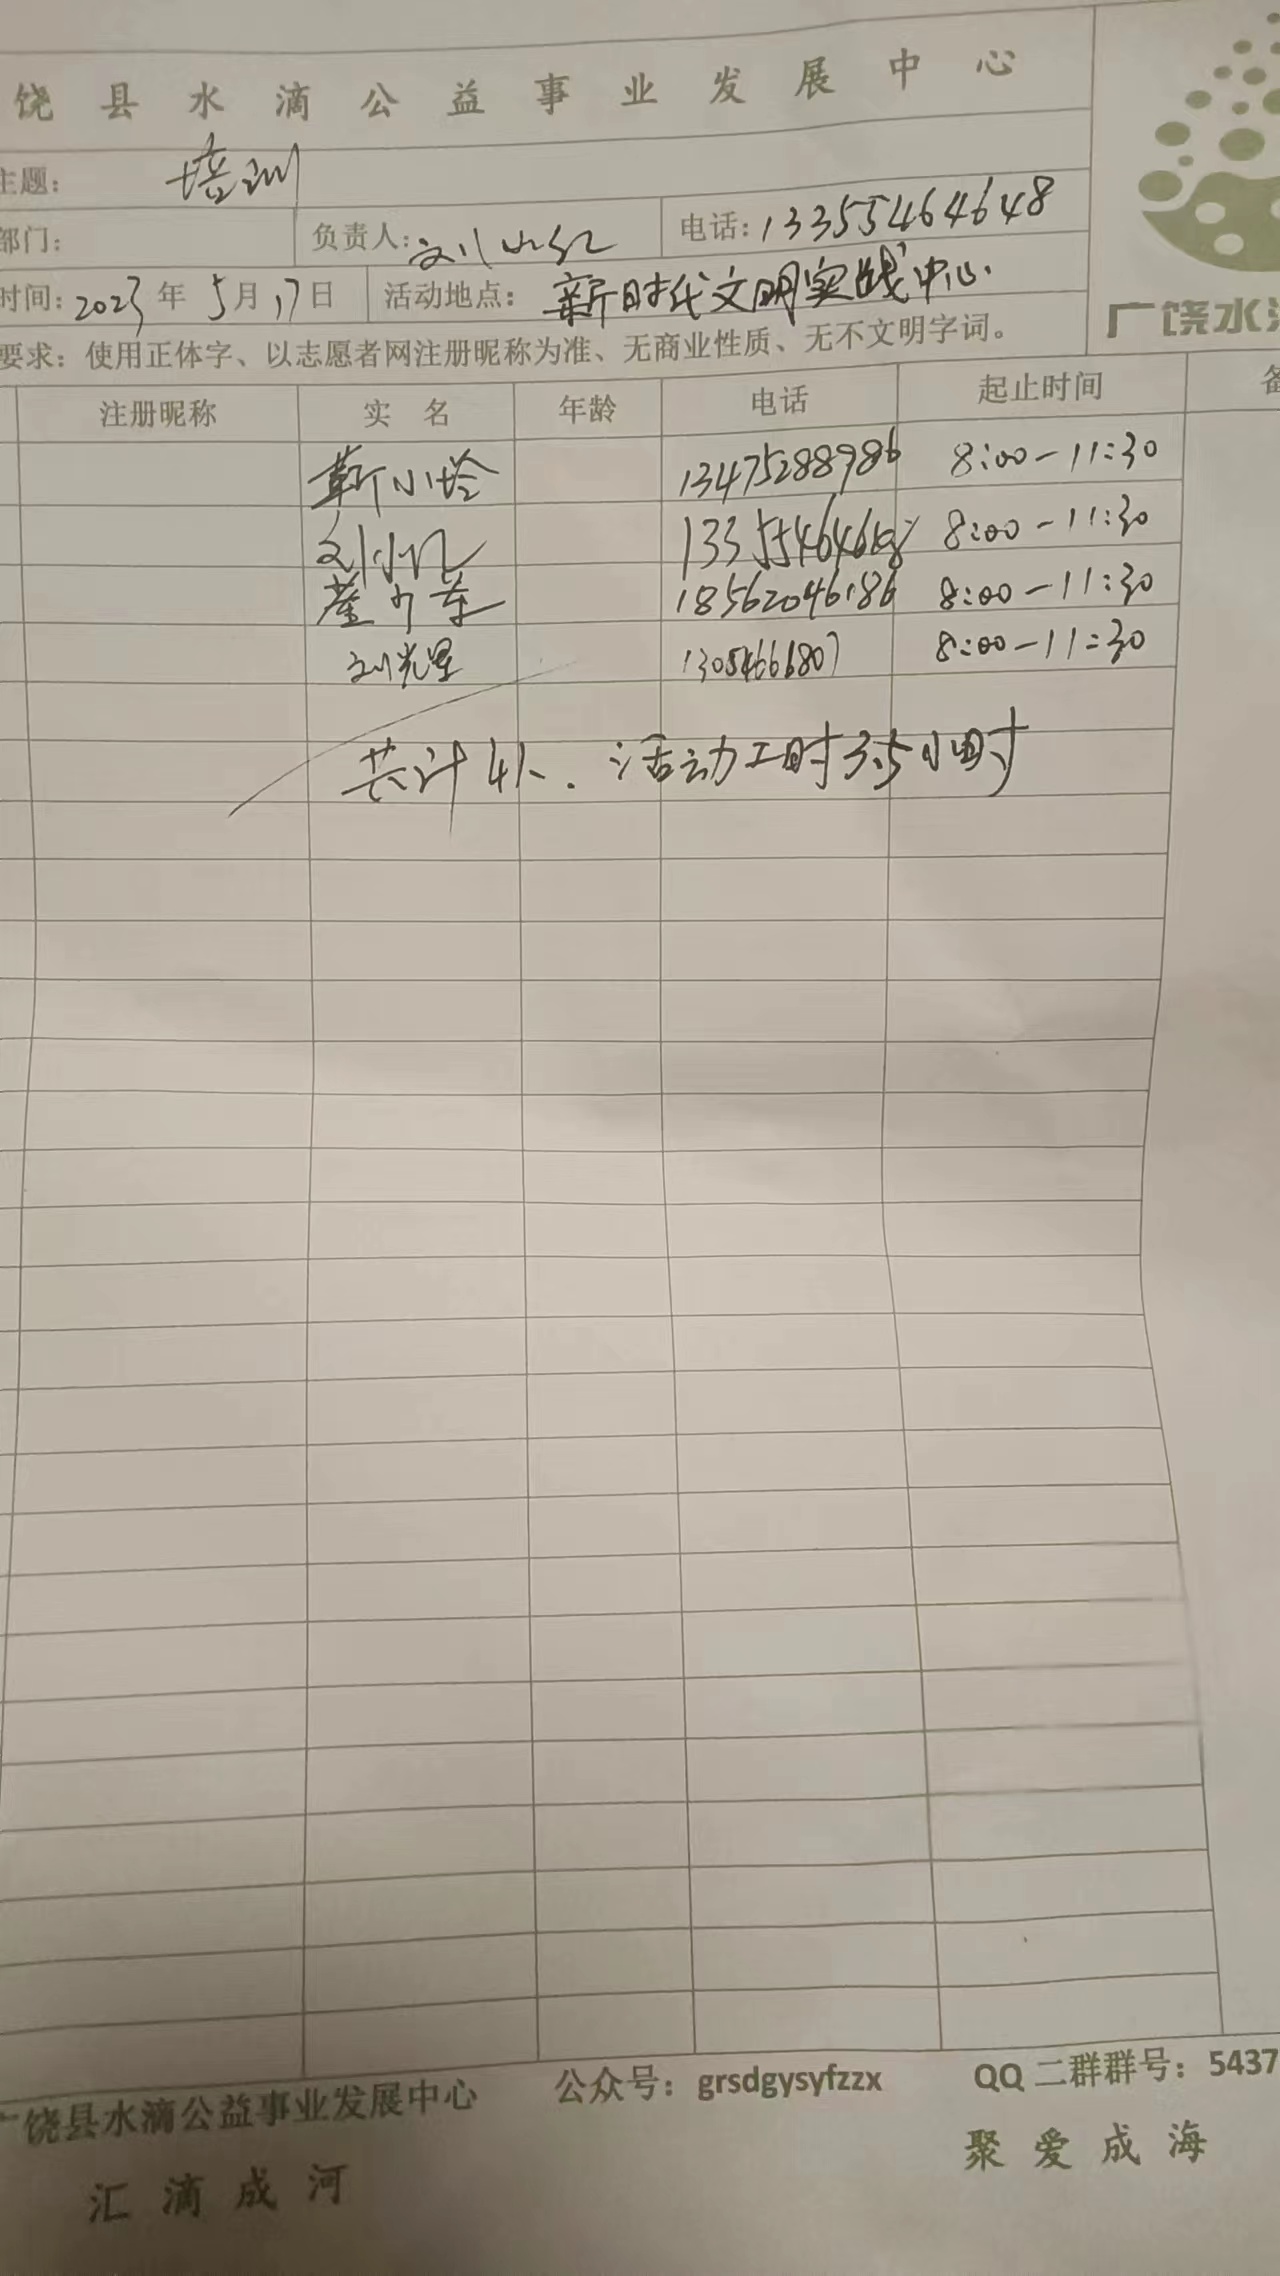 饶县水滴公益事业发展中心
主题: 培训
部门: 负责人: 刘小红 电话: 13355464648
时间: 2023年5月17日 活动地点: 新时代文明实践中心.
要求: 使用正体字、以志愿者网注册昵称为准、无商业性质、无不文明字词。
广饶水滴
注册昵称 实名 年龄 电话 起止时间 备
靳小 13475288986 8:00-11:30
刘小红 133554646 8:00-11:30
崔 18562046186 8:00-11:30
刘光星 1305466680 8:00-11:30
共计4人. 活动工时3.5小时
广饶县水滴公益事业发展中心 公众号: grsdgysyfzzx QQ二群群号: 5437
汇滴成河 聚爱成海